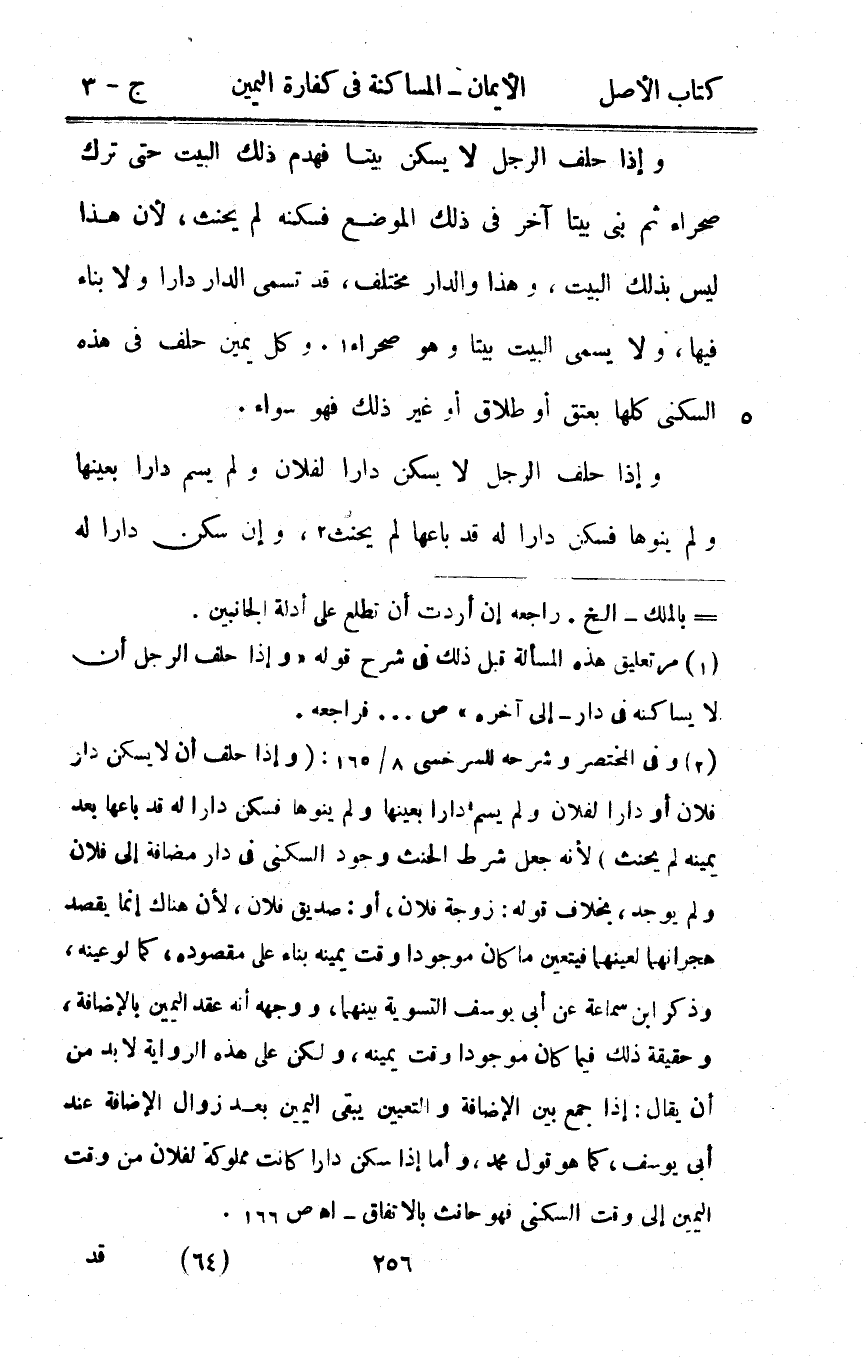 كتاب الأصل الأيمان ـ المساكنة فى كفارة اليمين ج - ٣
و إذا حلف الرجل لا يسكن بيتـا فهدم ذلك البيت حتى ترك
صحراء ثم بنى بيتا آخر فى ذلك الموضـع فسكنه لم يحنث، لأن هـذا
ليس بذلك البيت ، و هذا والدار مختلف، قد تسمى الدار دارا و لا بناء
فيها، و لا يسمى البيت بيتا و هو صحراء١ . و كل يمين حلف فى هذه
السكنى كلها بعتق أو طلاق أو غير ذلك فهو سواء . ٥
و إذا حلف الرجل لا يسكن دارا لفلان و لم يسم دارا بعينها
و لم ينوها فسكن دارا له قد باعها لم يحنث٢ ، و إن سكن دارا له
= بالملك ـ الخ . راجعه إن أردت أن تطلع على أدلة الجانبين .
(١) مر تعليق هذه المسألة قبل ذلك فى شرح قوله « و إذا حلف الرجل أن
لا يساكنه فى دار ـ إلى آخره » ص ... فراجعه .
(٢) و فى المختصر و شرحه للسرخسى ٨ / ١٦٥ : ( و إذا حلف أن لايسكن دار
فلان أو دارا لفلان و لم يسم دارا بعينها و لم ينوها فسكن دارا له قد باعها بعد
يمينه لم يحنث ) لأنه جعل شرط الحنث وجود السكنى فى دار مضافة إلى فلان
و لم يوجد ، بخلاف قوله : زوجة فلان ، أو : صديق فلان ، لأن هناك إنما يقصد
هجرانهما لعينهما فيتعين ماكان موجودا وقت يمينه بناء على مقصوده، كما لوعينه،
وذكر ابن سماعة عن أبى يوسف التسوية بينهما، و وجهه أنه عقد اليمين بالإضافة،
و حقيقة ذلك فيما كان موجودا وقت يمينه ، و لكن على هذه الرواية لا بد من
أن يقال : إذا جمع بين الإضافة و التعيين يبقى اليمين بعـد زوال الإضافة عند
أبى يوسف ، كما هو قول محمد ، و أما إذا سكن دارا كانت مملوكة لفلان من وقت
اليمين إلى وقت السكنى فهو حانث بالاتفاق ـ اه ص ١٦٦ .
٢٥٦ (٦٤) قد